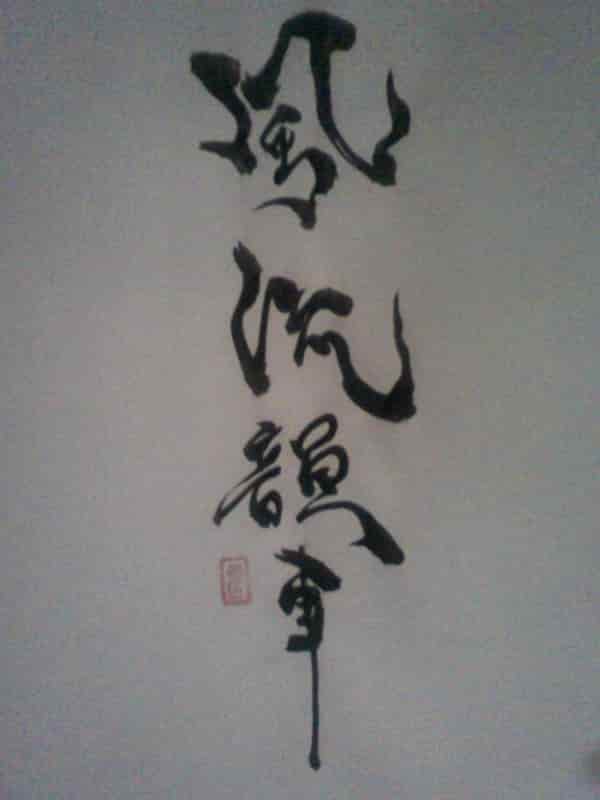 風流韻事